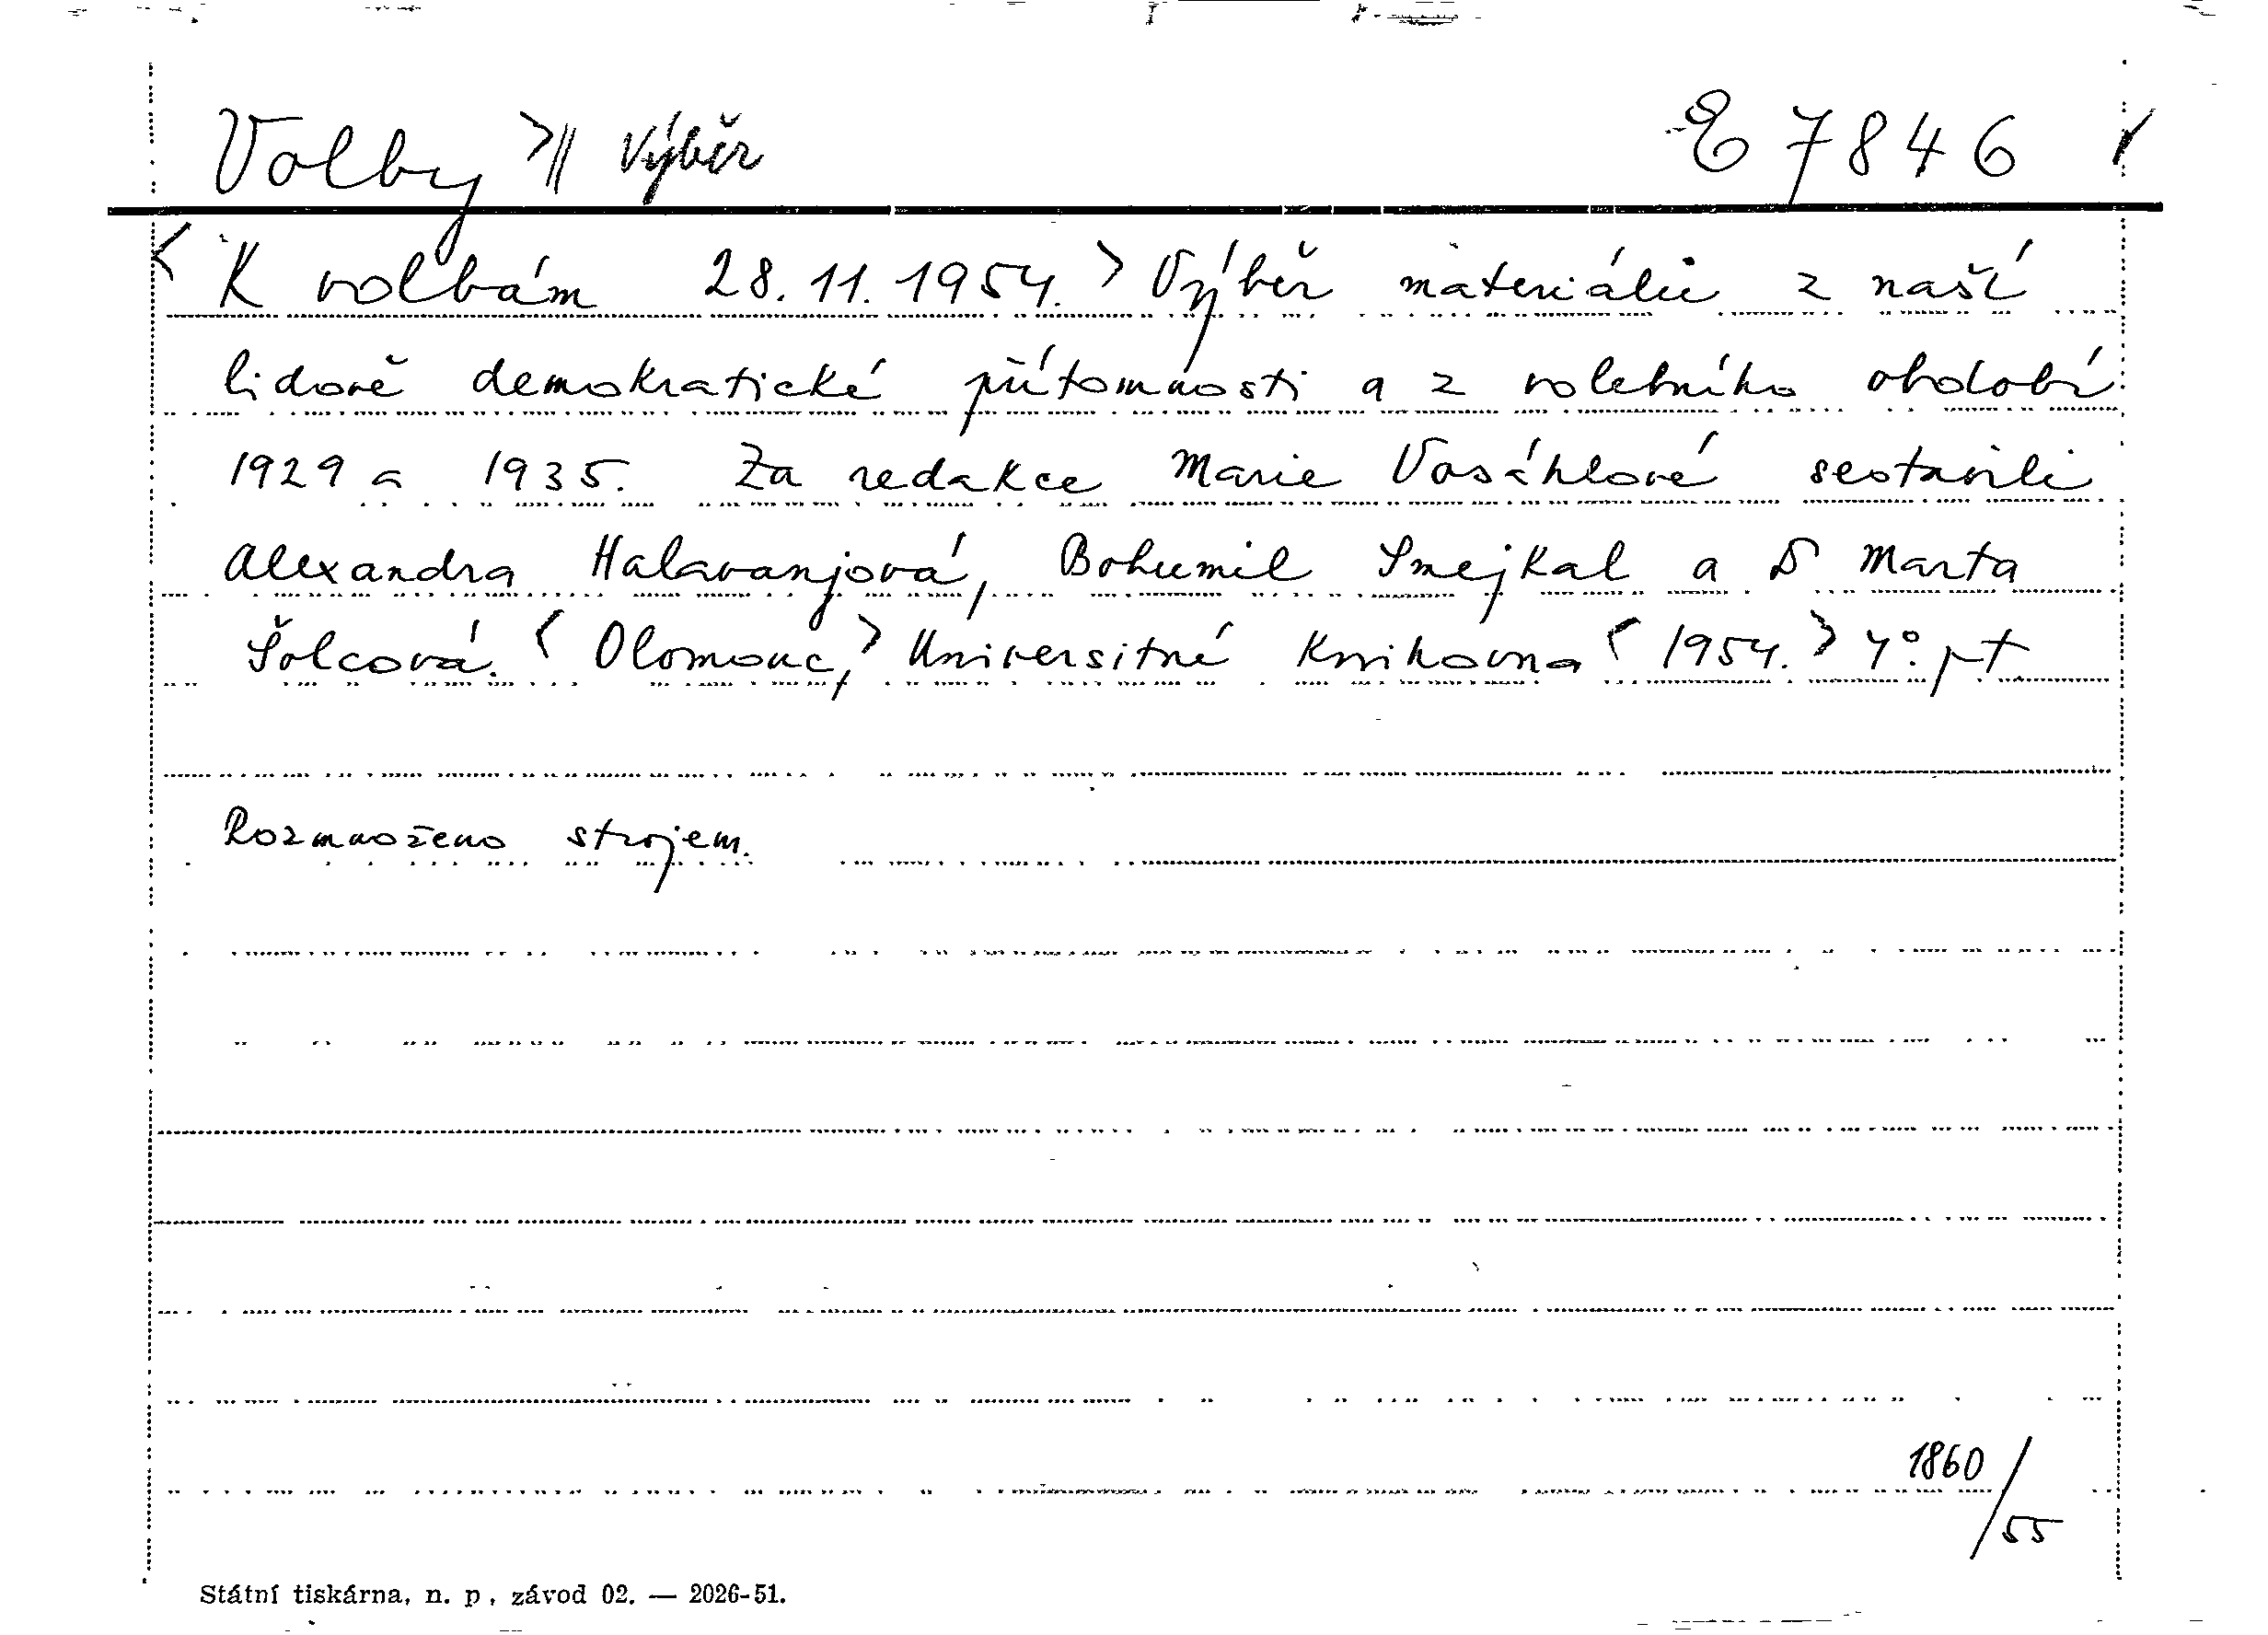 Volby >|| Výběr E 7846
<K volbám 28.11.1954.> Výběr materiálů z naší
lidově demokratické přítomnosti a z volebního období
1929 a 1935. Za redakce Marie Vosáhlové sestavili
Alexandra Halavanjová, Bohumil Smejkal a Dr Marta
Šolcová. <Olomouc,> Universitní Knihovna <1954.> 4°.
Rozmnoženo strojem.
1860/55
Státní tiskárna, n. p., závod 02. — 2026-51.